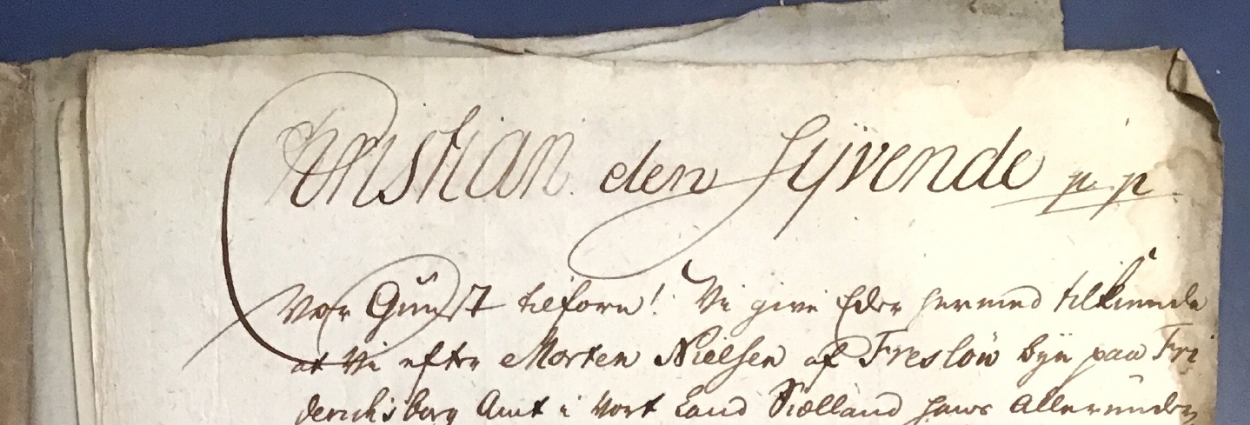 Christian den Syvende p. p.
Vor Gunst tilforn! Vi give Eder hermed tilkiende
at Vi efter Morten Nielsen af Freslöw Bye paa Fri
derichsborg Amt i Vort Land Siælland hans allerunder